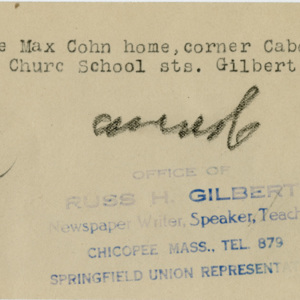 e Max Cohn home, corner Cabo
Churc School sts. Gilbert
OFFICE OF
RUSS H. GILBERT
Newspaper Writer, Speaker, Teach
CHICOPEE MASS., TEL. 879
SPRINGFIELD UNION REPRESENTAT